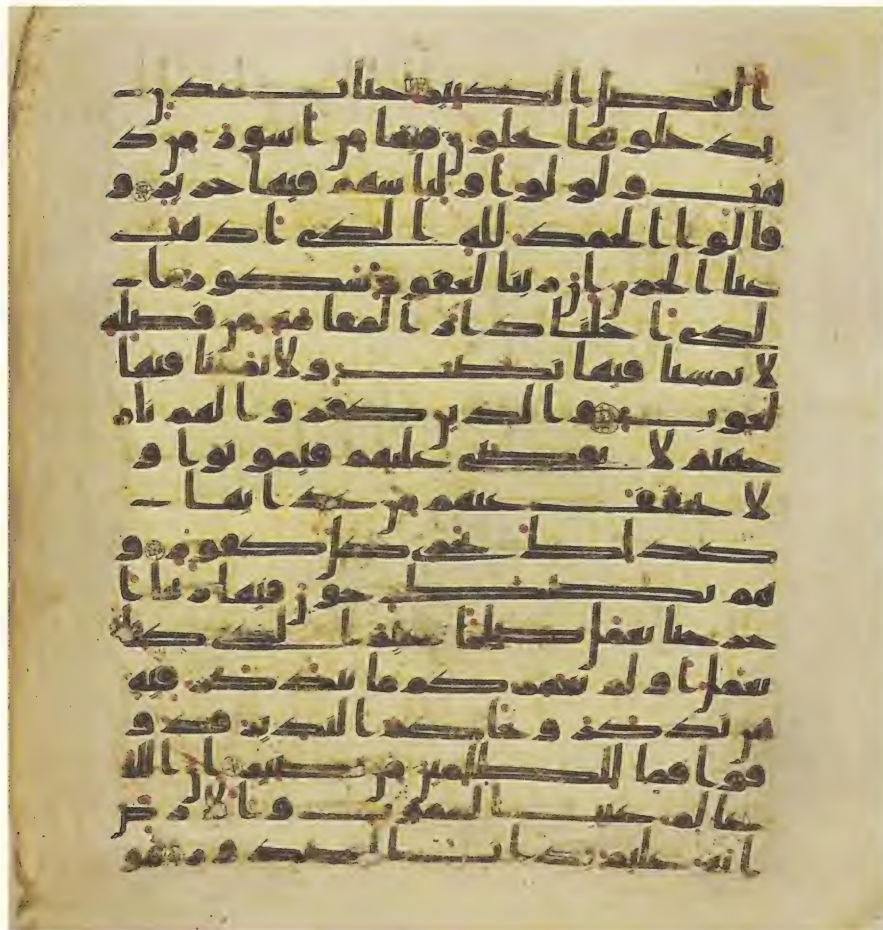 الفضل الكبير جنات عدن
يدخلونها يحلون فيها من اسور من ذ
هب ولولوا ولباسهم فيها حرير و
قالوا الحمد لله الذي اذهب
عنا الحزن ان ربنا لغفور شكور ا
لذي احلنا دار المقامة من فضله
لا يمسنا فيها نصب ولا يمسنا فيها
لغوب والذين كفروا لهم نار
جهنم لا يقضى عليهم فيموتوا و
لا يخفف عنهم من عذابها
كذلك نجزي كل كفور و
هم يصطرخون فيها ربنا ا
خرجنا نعمل صلحا غير الذي كنا
نعمل اولم نعمركم ما يتذكر فيه
من تذكر وجاكم النذير فذو
قوا فما للظلمين من نصير ان الله
علم غيب السموت والارض
انه عليم بذات الصدور هو